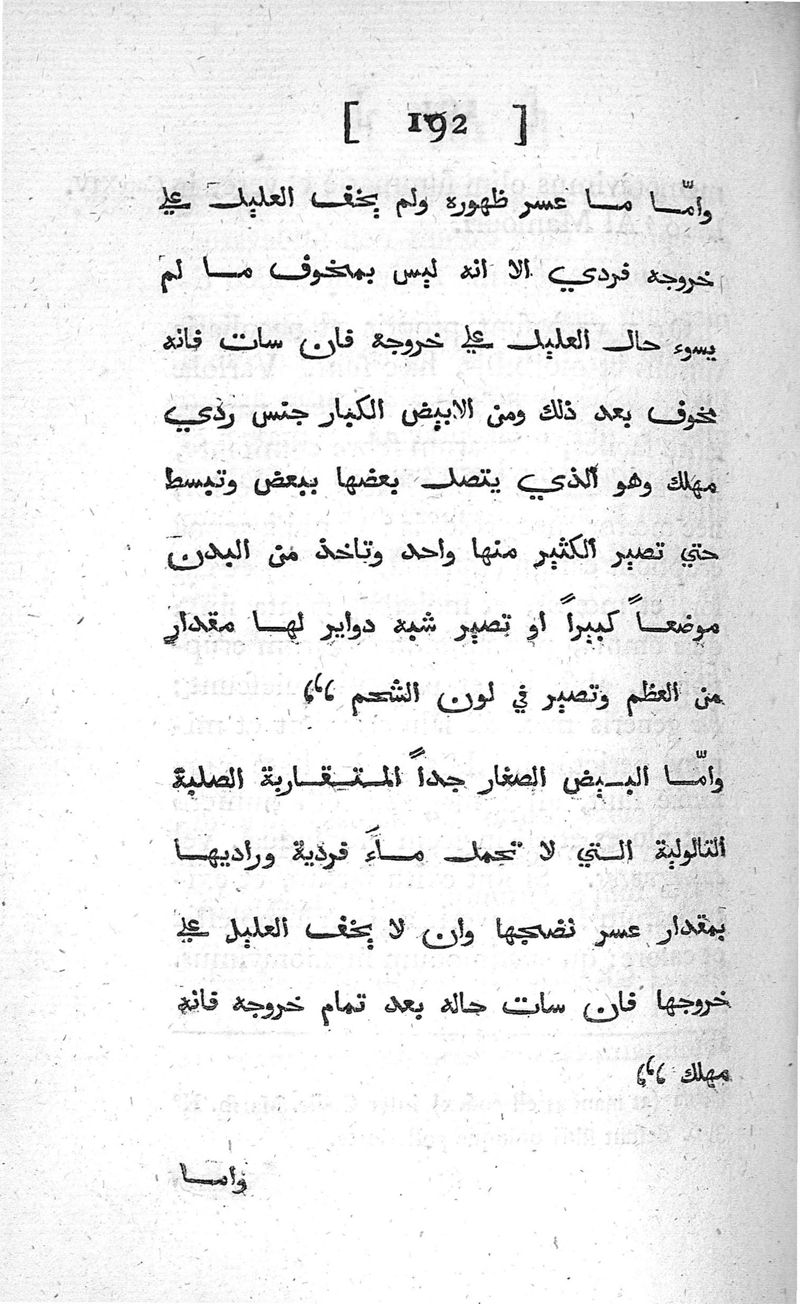 [ 192 ]
وامّا ما عسر ظهوره ولم يخف العليل علي
خروجه فردي الا انه ليس بمخوف ما لم
يسوء حال العليل علي خروجة فان سات فانه
مخوف بعد ذلك ومن الابيض الكبار جنس ردي
مهلك وهو الذي يتصل بعضها ببعض وتبسط
حتي تصير الكثير منها واحد وتاخذ من البدن
موضعاً كبيراً او تصير شبه دواير لها مقدار
من العظم وتصير في لون الشحم
وامّا البيض الصغار جداً المتقاربة الصلبة
الثالولية التي لا تحمل ماءَ فردية ورادیها
بمقدار عسر نضجها وان لا يخف العليل علي
خروجها فان سات حاله بعد تمام خروجه فانه
مهلك
وامسا